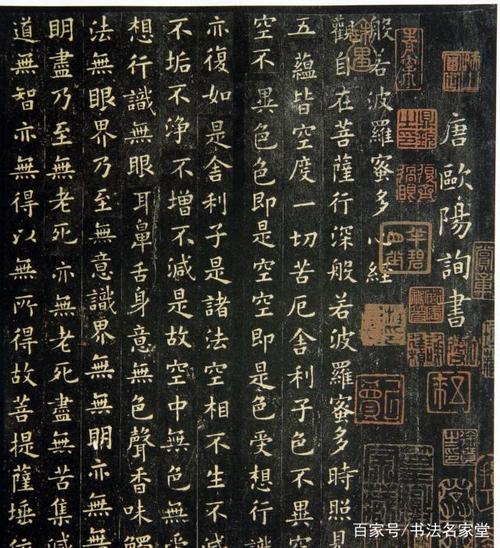 唐歐陽詢書
般若波羅蜜多心經
觀自在菩薩行深般若波羅蜜多時照見
五蘊皆空度一切苦厄舍利子色不異空
空不異色色即是空空即是色受想行識
亦復如是舍利子是諸法空相不生不滅
不垢不淨不增不減是故空中無色無受
想行識無眼耳鼻舌身意無色聲香味觸
法無眼界乃至無意識界無無明亦無無
明盡乃至無老死亦無老死盡無苦集滅
道無智亦無得以無所得故菩提薩埵
百家号/书法名家堂